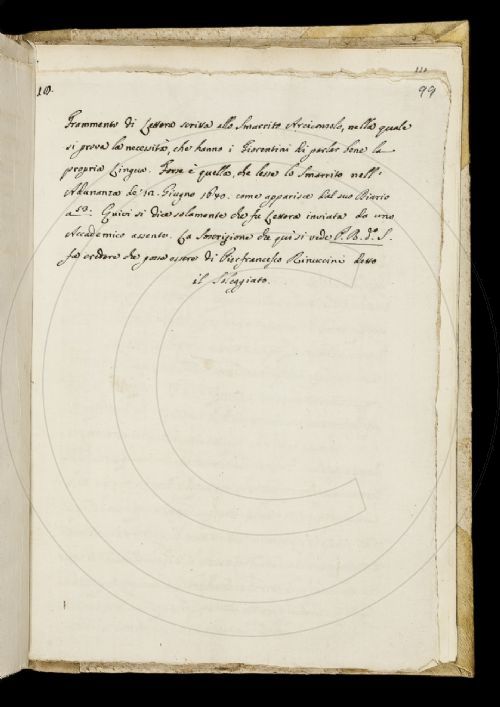 111
10.
99
Frammento di Lettera scritta allo Smarrito Arciconsolo, nella quale
si prova la necessità, che hanno i Fiorentini di parlar bene la
propria Lingua. Forse è quella, che lesse lo Smarrito nell'
Adunanza de' 12. Giugno 1640. come apparisce dal suo Diario
a Quivi si dice solamente che fu Lettera inviata da uno
Accademico assente. La Soscrizione che qui si vede P. R. d.º S.
fa credere che possa essere di Pierfrancesco Rinuccini detto
il